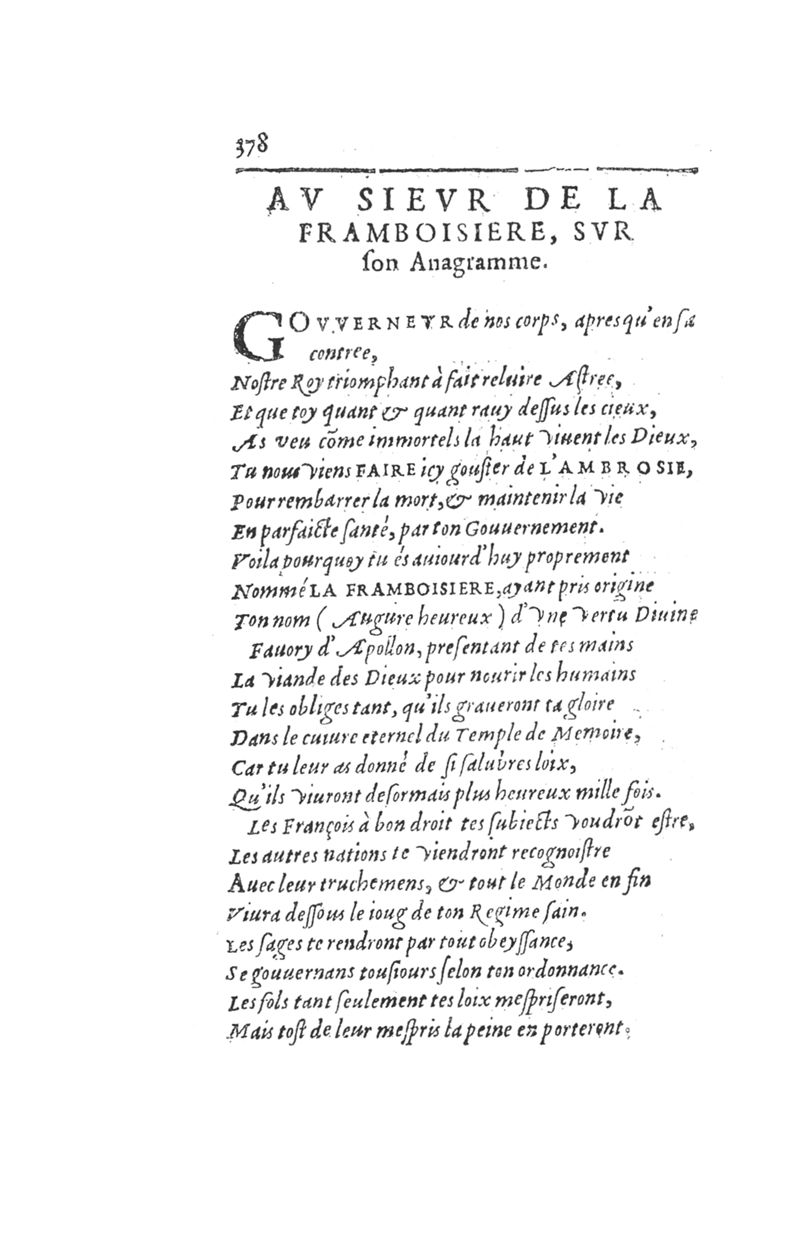 378
AV SIEVR DE LA
FRAMBOISIERE, SVR
ſon Anagramme.
GOVVERNEVR de nos corps, apres qu'en ſa
contree,
Noſtre Roy triomphant à fait reluire Aſtree,
Et que toy quant & quant rauy deſſus les cieux,
As veu cõme immortels la haut viuent les Dieux,
Tu nous viens FAIRE icy gouſter de L'AMBROSIE,
Pour rembarrer la mort, & maintenir la vie
En parfaicte ſanté, par ton Gouuernement.
Voila pourquoy tu és auiourd'huy proprement
Nommé LA FRAMBOISIERE, ayant pris origine
Ton nom ( Augure heureux ) d'vne vertu Diuine
Fauory d'Apollon, preſentant de tes mains
La viande des Dieux pour nourir les humains
Tu les obliges tant, qu'ils graueront ta gloire
Dans le cuiure eternel du Temple de Memoire,
Car tu leur as donné de ſi ſalubres loix,
Qu'ils viuront deſormais plus heureux mille fois.
Les François à bon droit tes ſubiects voudrõt eſtre,
Les autres nations te viendront recognoiſtre
Auec leur truchemens, & tout le Monde en fin
Viura deſſous le ioug de ton Regime ſain.
Les ſages te rendront par tout obeyſſance,
Se gouuernans touſiours ſelon ton ordonnance.
Les fols tant ſeulement tes loix meſpriſeront,
Mais toſt de leur meſpris la peine en porteront.